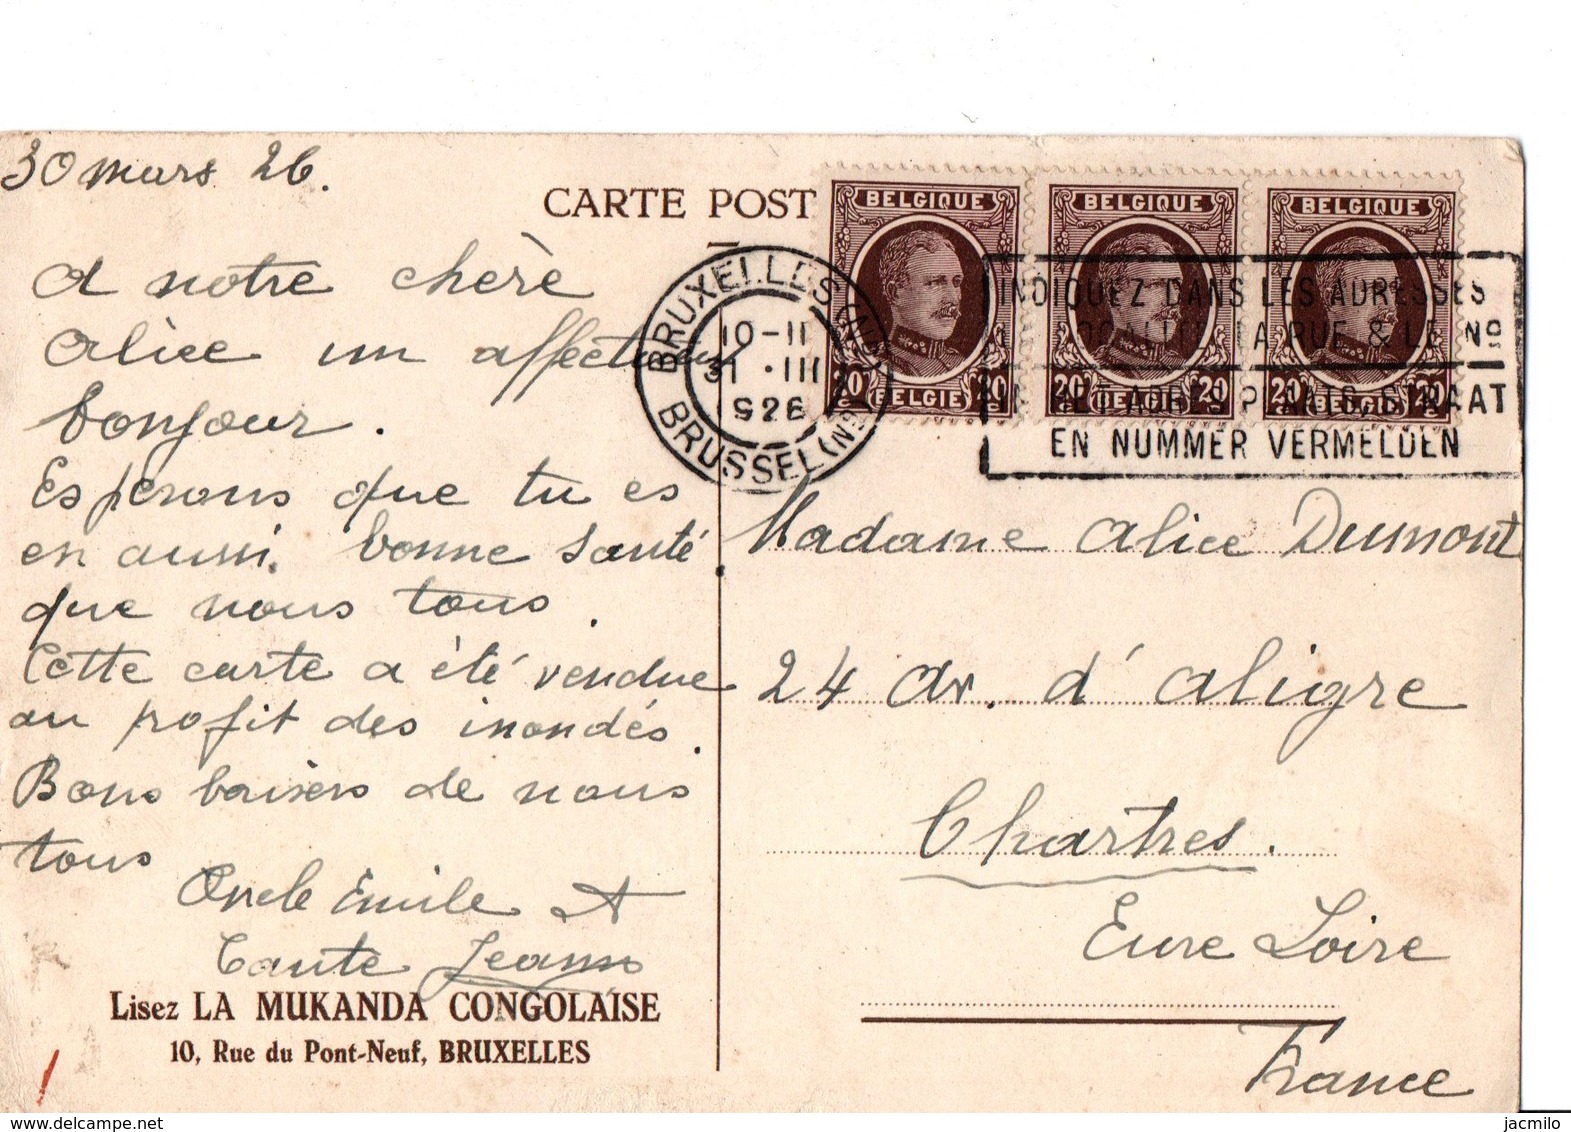 30 mars 26.
CARTE POST
BELGIQUE
BELGIQUE
BELGIQUE
BRUXELLES (Nd)
10-11
31 · III
1926
BRUSSEL (Nd)
20 BELGIE 20
20 20
20 20
INDIQUEZ DANS LES ADRESSES
LA LOCALITE, LA RUE & LE No
IN HET ADRES PLAATS, STRAAT
EN NUMMER VERMELDEN
A notre chère
Alice un affectueux
bonjour.
Esperons que tu es
en aussi bonne santé
que nous tous.
Cette carte a été vendue
au profit des inondés.
Bons baisers de nous
tous
Oncle Emile et
Tante Jeanne
Lisez LA MUKANDA CONGOLAISE
10, Rue du Pont-Neuf, BRUXELLES
Madame Alice Dumont
24 av. d'Aligre
Chartres.
Eure Loire
France
jacmilo